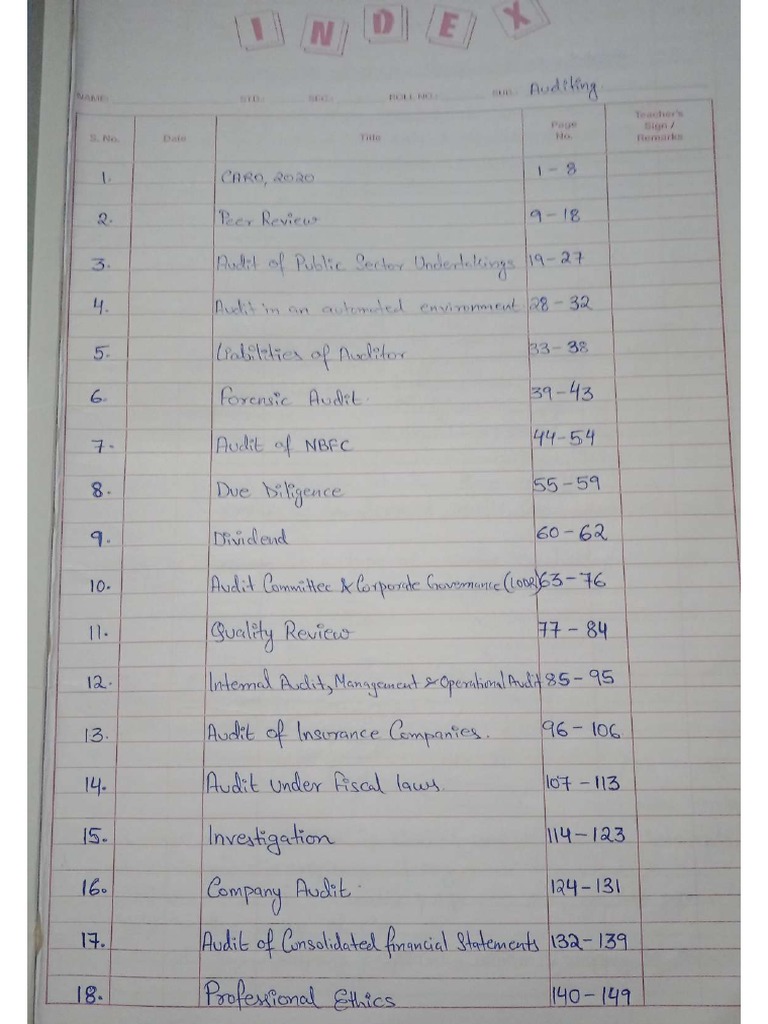 INDEX
NAME: STD.: SEC.: ROLL NO.: SUB.: Auditing
S. No. Date Title Page No. Teacher's Sign / Remarks
1. CARO, 2020 1 - 8
2. Peer Review 9 - 18
3. Audit of Public Sector Undertakings 19 - 27
4. Audit in an automated environment 28 - 32
5. Liabilities of Auditor 33 - 38
6. Forensic Audit. 39 - 43
7. Audit of NBFC 44 - 54
8. Due Diligence 55 - 59
9. Dividend 60 - 62
10. Audit Committee & Corporate Governance (LODR) 63 - 76
11. Quality Review 77 - 84
12. Internal Audit, Management & Operational Audit 85 - 95
13. Audit of Insurance Companies. 96 - 106
14. Audit under fiscal laws. 107 - 113
15. Investigation 114 - 123
16. Company Audit. 124 - 131
17. Audit of Consolidated financial Statements 132 - 139
18. Professional Ethics 140 - 149